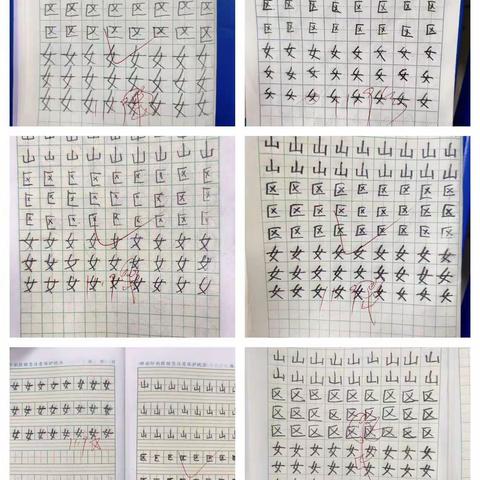 区 区 区 区 区 区 区 区
区 区 区 区 区 区 区 区
女 女 女 女 女 女 女 女
女 女 女 女 女 女 女 女
女 女 女 女 女 女 女 女
区 区 区 区 区 区 区 区
区 区 区 区 区 区 区 区
女 女 女 女 女 女 女 女
女 女 女 女 女 女 女 女
女 女 女 女 女 女 女 女
山 山 山 山 山 山 山 山
区 区 区 区 区 区 区 区
区 区 区 区 区 区 区 区
区 区 区 区 区 区 区 区
女 女 女 女 女 女 女 女
女 女 女 女 女 女 女 女
女 女 女 女 女 女 女 女
山 山 山 山 山 山 山 山 山
山 山 山 山 山 山 山 山 山
区 区 区 区 区 区 区 区 区
区 区 区 区 区 区 区 区 区
区 区 区 区 区 区 区 区 区
女 女 女 女 女 女 女 女 女
女 女 女 女 女 女 女 女 女
女 女 女 女 女 女 女 女 女
女 女 女 女 女 女 女 女 女
女 女 女 女 女 女 女 女 女
女 女 女 女 女 女 女 女 女
山 山 山 山 山 山 山 山 山
山 山 山 山 山 山 山 山 山
山 山 山 山 山 山 山 山 山
区 区 区 区 区 区 区 区 区
山 山 山 山 山 山 山 山
山 山 山 山 山 山 山 山
区 区 区 区 区 区 区 区
区 区 区 区 区 区 区 区
区 区 区 区 区 区 区 区
女 女 女 女 女 女 女 女
女 女 女 女 女 女 女 女
女 女 女 女 女 女 女 女